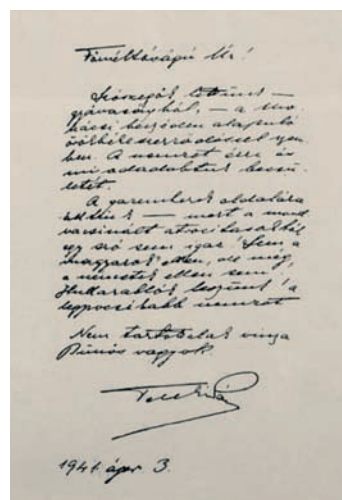 Főméltóságú Úr!
Szószegők lettünk —
gyávaságból, — a mo-
hácsi beszéden alapuló
örökbékeszerződéssel szem-
ben. A nemzet érzi és
mi odadobtuk becsü-
letét.
A gazemberek oldalára
álltunk — mert a mond
vacsinált atrocitásokból
egy szó sem igaz! Sem a
magyarok ellen, de még
a németek ellen sem!
Hullarablók leszünk! a
legpocsékabb nemzet
Nem tartottalak vissza
Bűnös vagyok
Teleki Pál
1941. ápr. 3.